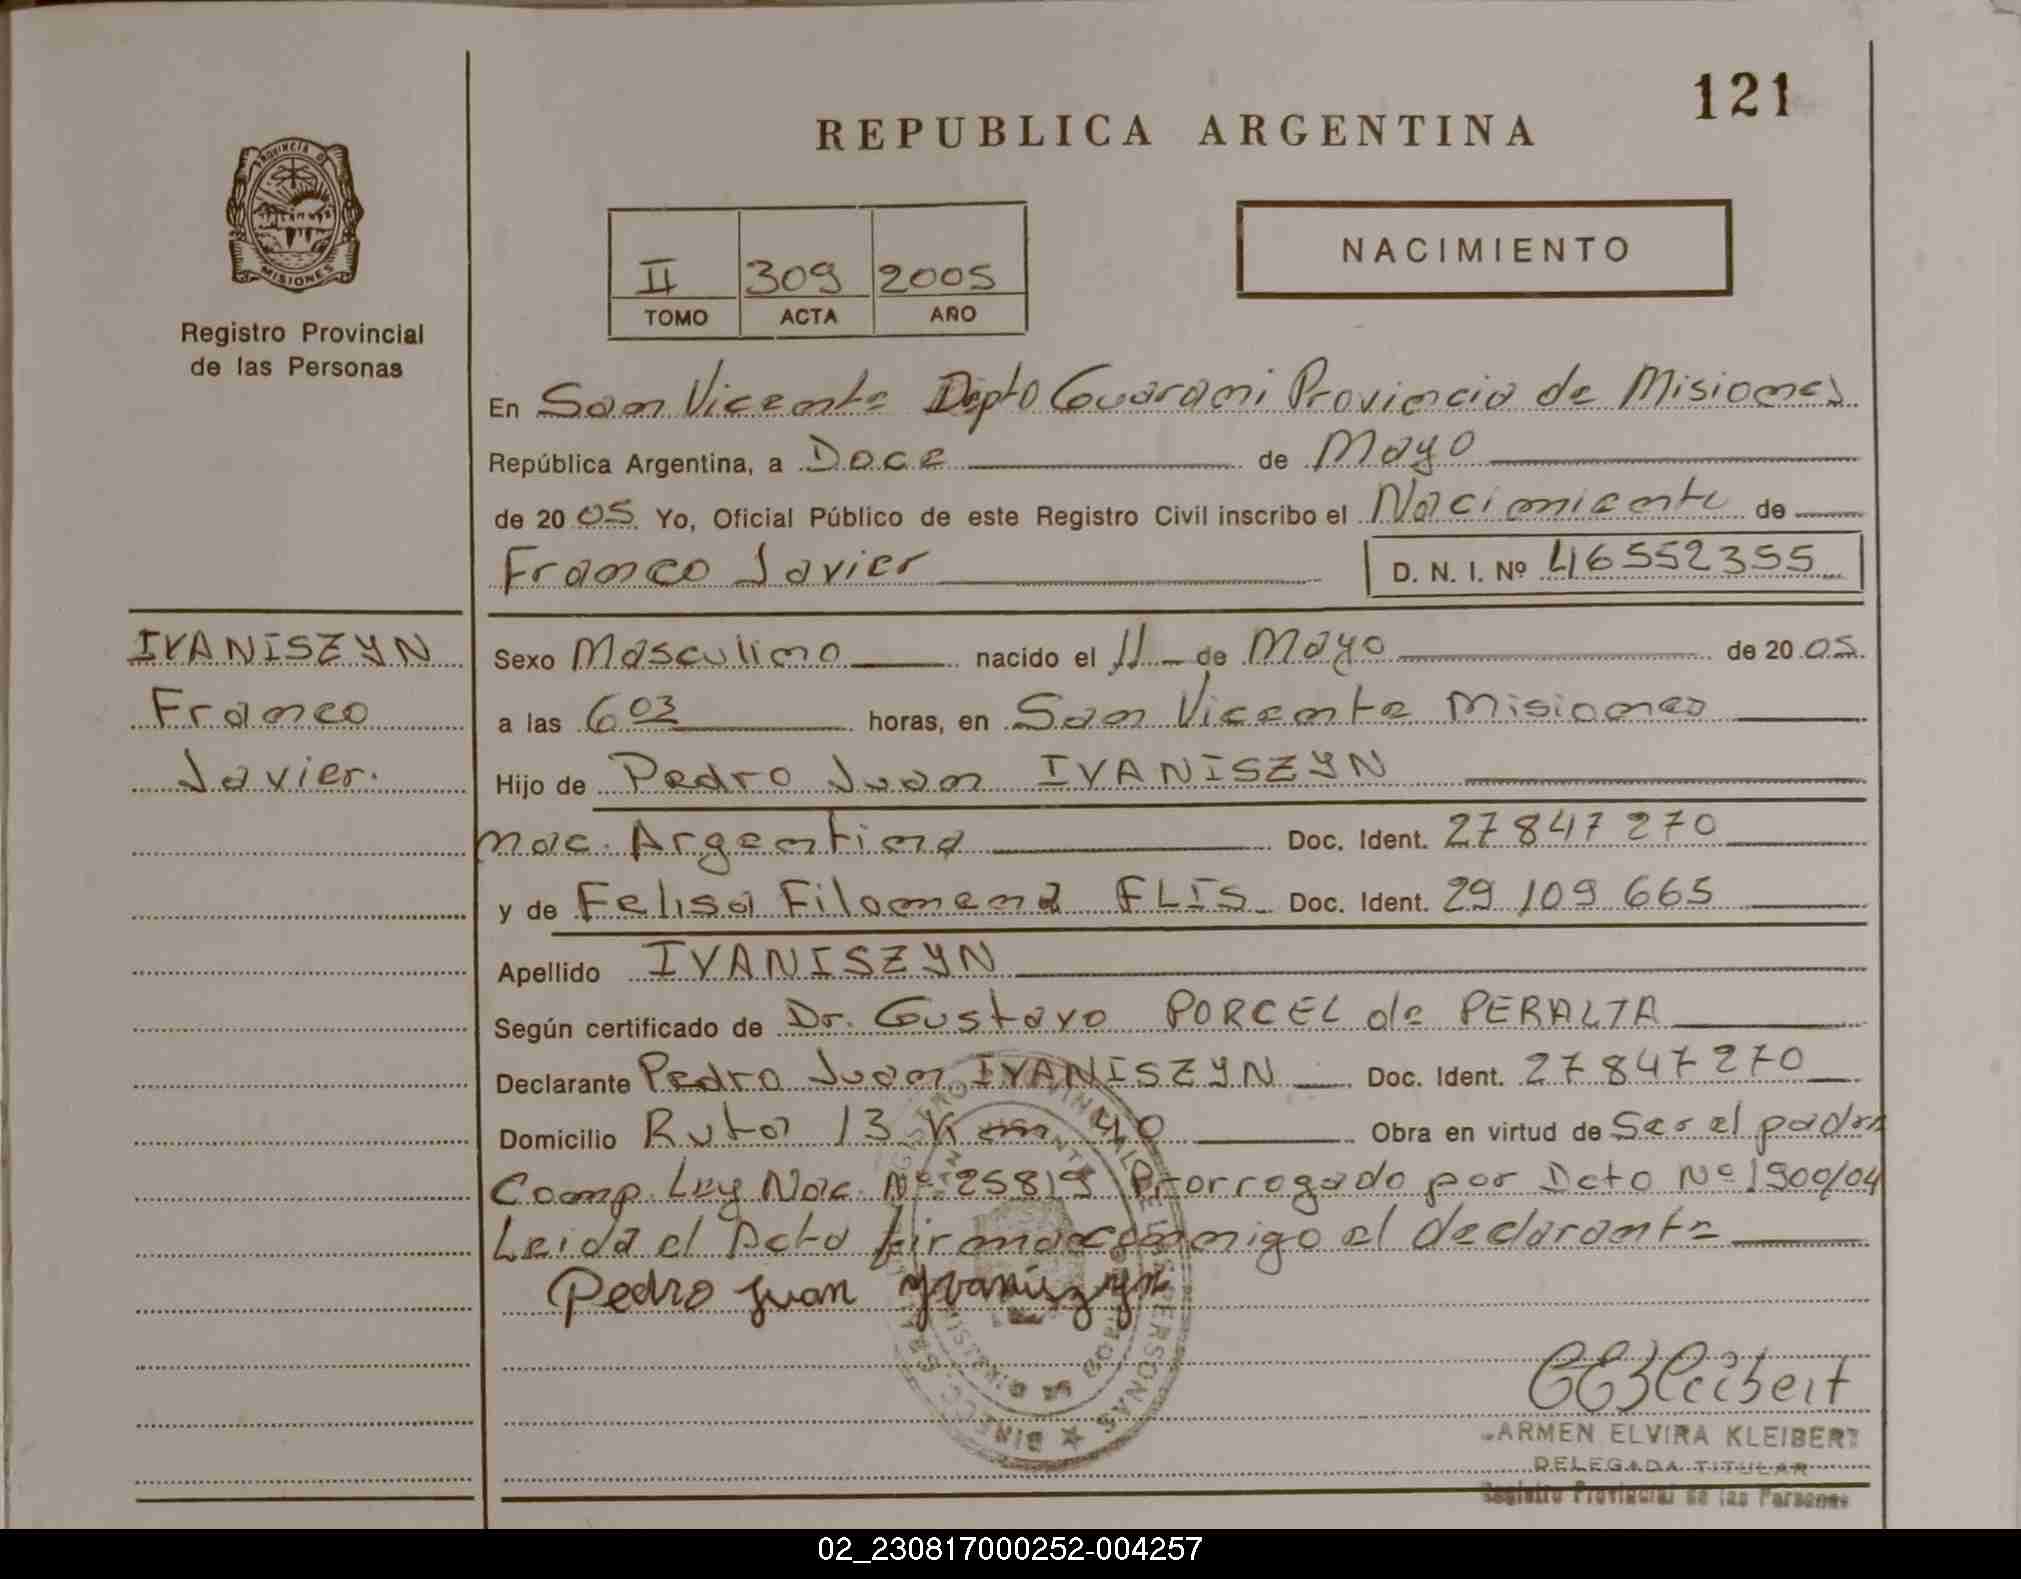 121
REPUBLICA ARGENTINA
PROVINCIA DE
MISIONES
Registro Provincial
de las Personas
II 309 2005
TOMO ACTA AÑO
NACIMIENTO
En San Vicente Dpto Guarani Provincia de Misiones
República Argentina, a Doce de Mayo
de 2005 Yo, Oficial Público de este Registro Civil inscribo el Nacimiento de
Franco Javier D. N. I. Nº 46552355
IVANISZYN
Franco
Javier.
Sexo Masculino nacido el 11 de Mayo de 2005
a las 6 03 horas, en San Vicente Misiones
Hijo de Pedro Juan IVANISZYN
nac. Argentina Doc. Ident. 27 847 270
y de Felisa Filomena FLIS Doc. Ident. 29 109 665
Apellido IVANISZYN
Según certificado de Dr. Gustavo PORCEL de PERALTA
Declarante Pedro Juan IVANISZYN Doc. Ident. 27 847 270
Domicilio Ruta 13 Km 40 Obra en virtud de Ser el padre
Comp. Ley Nac. Nº 25819 Prorrogado por Dcto Nº 1900/04
Leida el Acta firma conmigo el declarante
Pedro Juan Yvaniszyn
CEKleibert
CARMEN ELVIRA KLEIBERT
DELEGADA TITULAR
Registro Provincial de las Personas
02_230817000252-004257